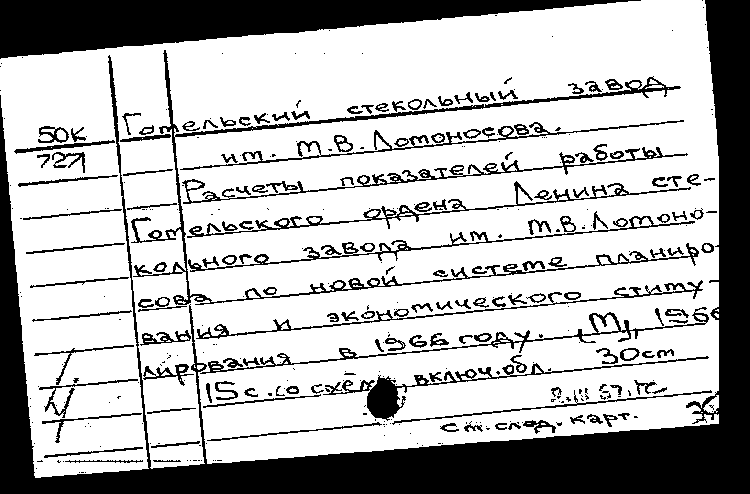 50К Гомельский стекольный завод
727 им. М.В.Ломоносова.
Расчеты показателей работы
Гомельского ордена Ленина сте-
кольного завода им. М.В.Ломоно-
сова по новой системе планиро-
вания и экономического стиму-
лирования в 1966 году. [М], 1966
15с. со схем, включ.обл. 30см
см.след. карт.